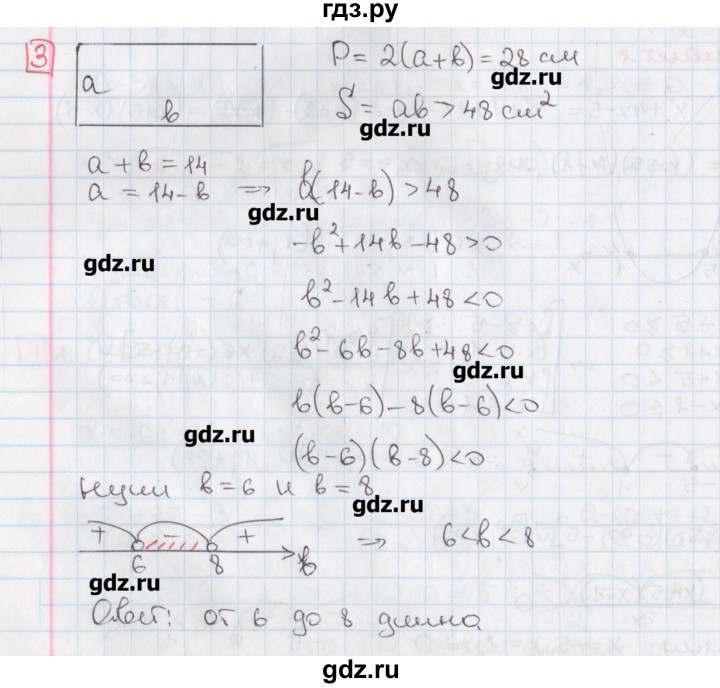 гдз.ру
3
a
b
P = 2(a+b) = 28 см
gdz.ru
S = ab > 48 см²
gdz.ru
a + b = 14
a = 14 - b ⇒ b(14-b) > 48
gdz.ru
-b² + 14b - 48 > 0
gdz.ru
b² - 14b + 48 < 0
b² - 6b - 8b + 48 < 0
gdz.ru
b(b-6) - 8(b-6) < 0
gdz.ru
(b-6)(b-8) < 0
нули b = 6 и b = 8
gdz.ru
+ - +
6 8 b
⇒ 6 < b < 8
gdz.ru
Ответ: от 6 до 8 длина
gdz.ru